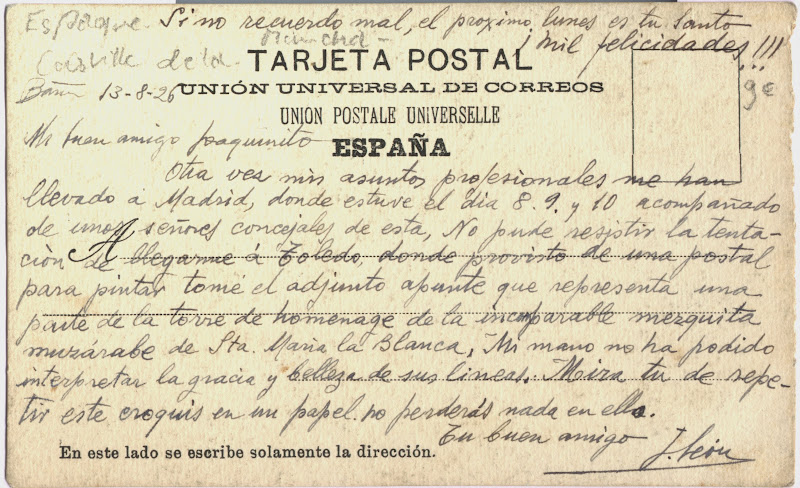 Espagne. Si no recuerdo mal, el proximo lunes es tu Santo
¡Mil felicidades!!!
Castille de la Mancha
TARJETA POSTAL
13-8-26 UNIÓN UNIVERSAL DE CORREOS
9€
UNION POSTALE UNIVERSELLE
Mi buen amigo Joaquinito
ESPAÑA
Otra vez mis asuntos profesionales me han
llevado a Madrid, donde estuve el dia 8. 9. y 10 acompañado
de unos señores concejales de esta, No pude resistir la tenta-
ción de llegarme á Toledo, donde provisto de una postal
para pintar tomé el adjunto apunte que representa una
parte de la torre de homenage de la incomparable mezquita
muzárabe de Sta. Maria la Blanca, Mi mano no ha podido
interpretar la gracia y belleza de sus lineas. Mira tu de repe-
tir este croquis en un papel. no perderás nada en ello.
Tu buen amigo
J. León
En este lado se escribe solamente la dirección.